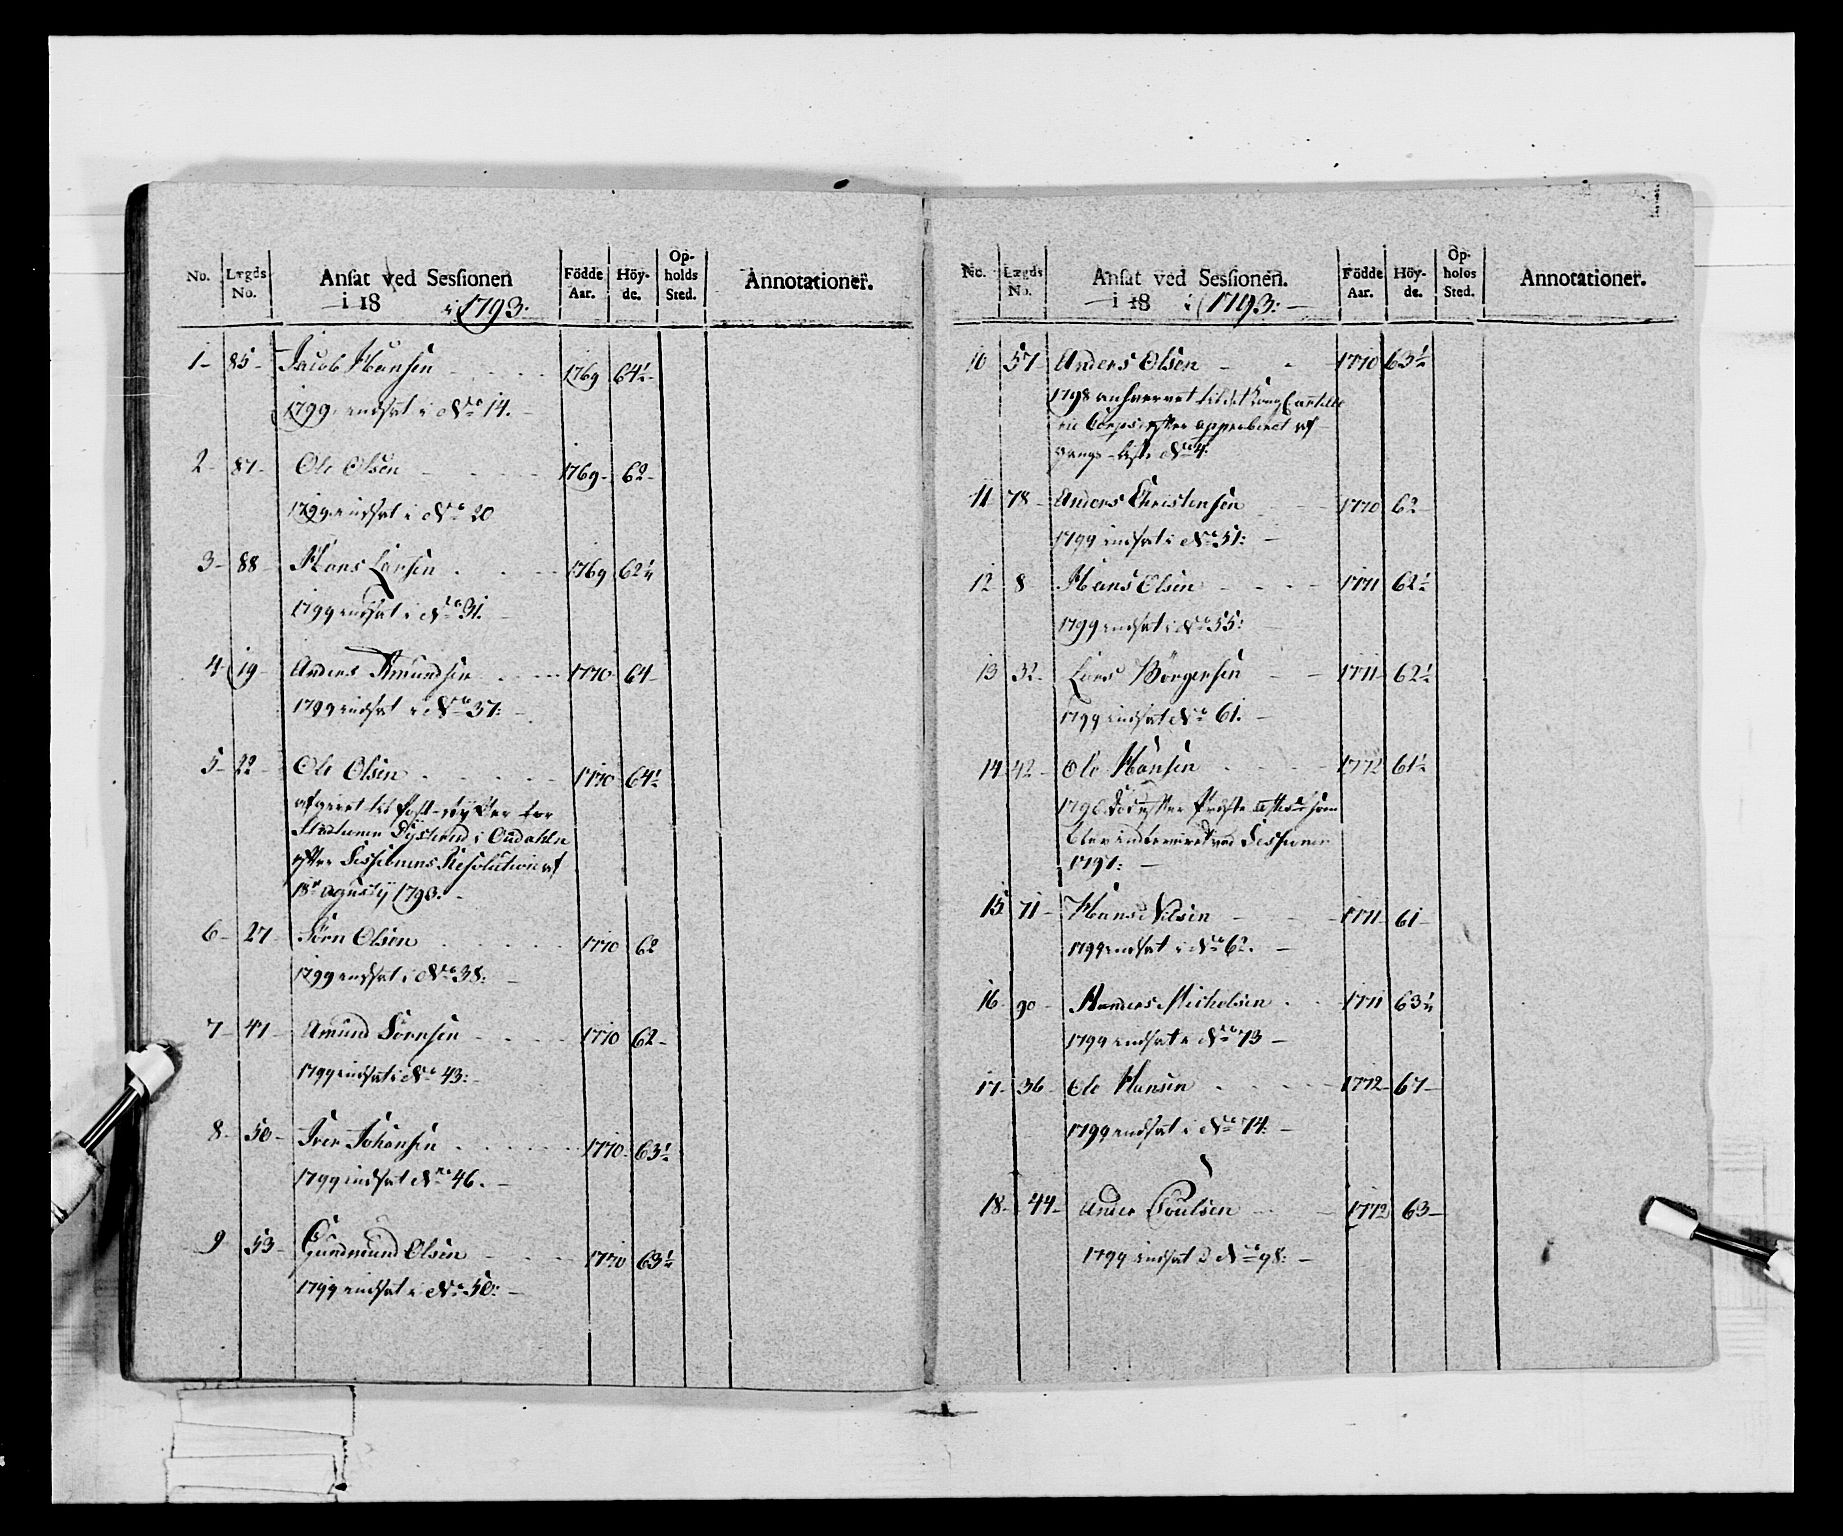 No. Lægds No. Ansat ved Sessionen i 18 i 1793. Födde Aar. Höyde. Opholds Sted. Annotationer.
1- 85- Jacob Hansen 1769 64½-
1799 indsat i No 14.
2- 87- Ole Olsen 1769- 62-
1799 indsat i No 20
3- 88- Hans Larsen 1769 62¼
1799 indsat i No 31.
4- 19 Anders Amundsen 1770 64-
1799 indsat i No 37:
5- 22- Ole Olsen 1770 64½
afgivet til Post-rytter for
Stationen i Oudahln
efter Sessionens Resolution af
18de agustij 1793.
6- 27- Sörn Olsen 1770 62
1799 indsat i No 38:
7- 47- Amund Sörnsen 1770 62-
1799 indsat i No 43:
8- 50- Iver Johansen 1770 63½
1799 indsat No 46.
9 53- Gundmund Olsen 1770 63½
1799 indsat i No 50:
No. Lægds No. Ansat ved Sessionen. i 18 i 1793: Födde Aar. Höyde. Opholds Sted. Annotationer.
10 57 Anders Olsen 1770 63½
1798 anhvervet til det Kongl artille
rie Corps efter approberet af
gangs-Liste No 4.
11 78- Anders Christensen 1770 62-
1799 indsat i No 51:
12 8 Hans Olsen 1771 62½
1799 indsat i No 55:
13 32- Lars Börgersen 1771 62½
1799 indsat No 61.
14 42- Ole Hansen 1772 61½
efter Præste som
blev ved Sessionen
1797:
15 71- Hans Nilsen 1771 61-
1799 indsat i No 62.
16- 90- Anders Michelsen 1771 63¼
1799 indsat i No 73
17- 36- Ole Hansen 1772 67-
1799 indsat i No 74.
18- 44- Ander Poulsen 1772 63-
1799 indsat i No 98: